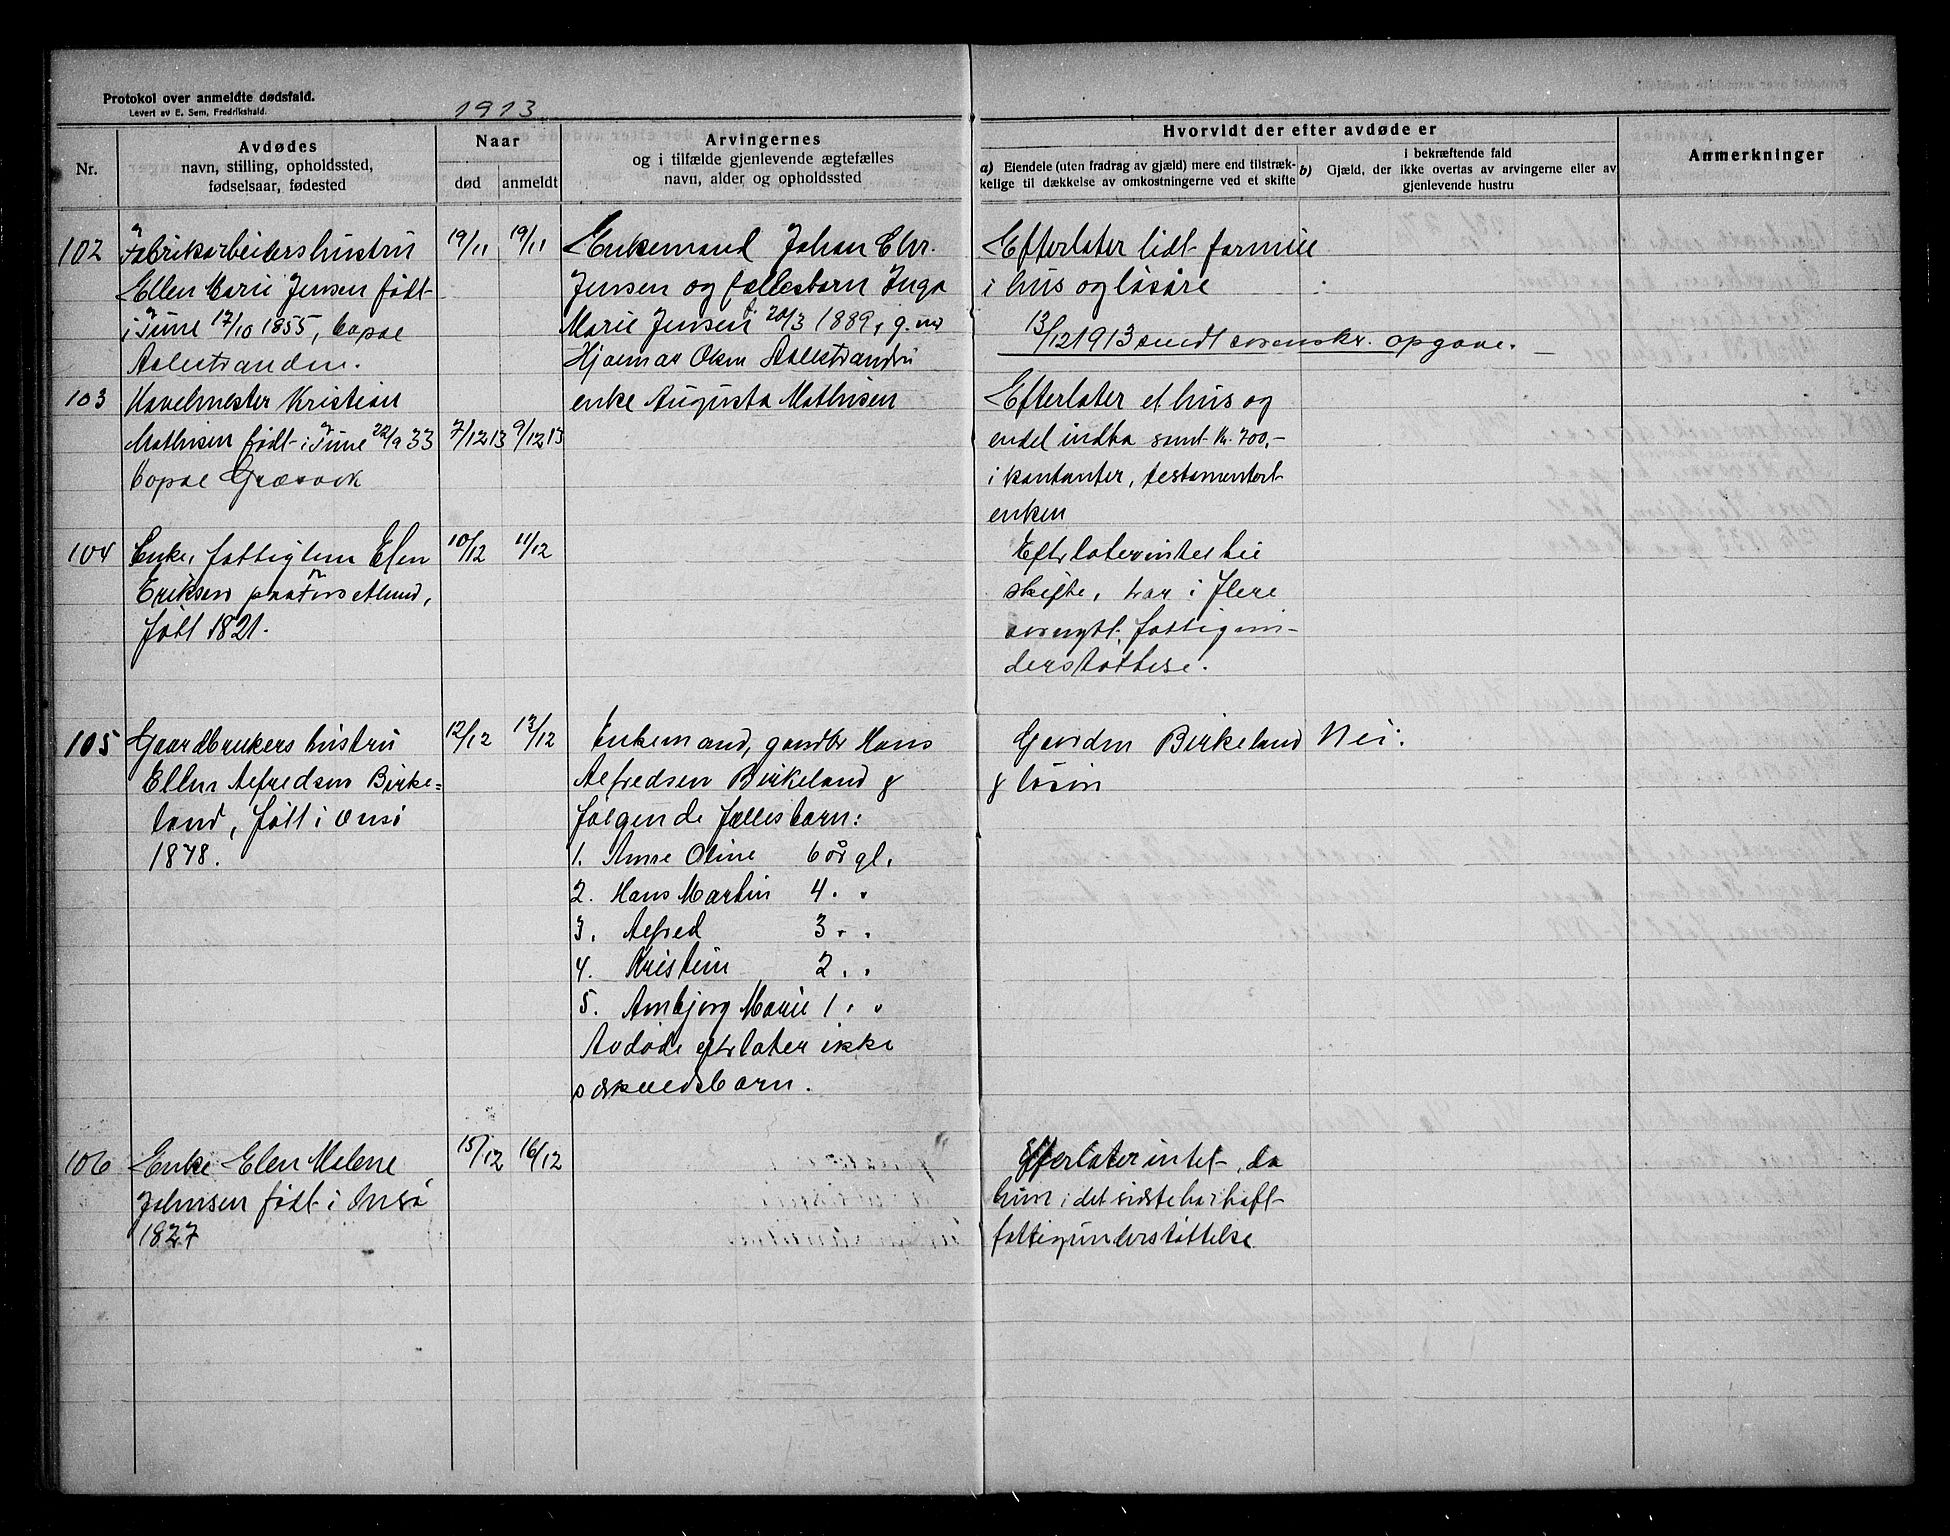 Protokol over anmeldte dødsfald.
Levert av E. Sem, Fredrikshald.
1913.
Nr.
Avdødes
navn, stilling, opholdssted,
fødselsaar, fødested
Naar
død
anmeldt
Arvingernes
og i tilfælde gjenlevende ægtefælles
navn, alder og opholdssted
Hvorvidt der efter avdøde er
a) Eiendele (uten fradrag av gjæld) mere end tilstræk-
kelige til dækkelse av omkostningerne ved et skifte
I bekræftende fald
b) Gjæld, der ikke overtas av arvingerne eller av
gjenlevende hustru
Anmerkninger
102
Fabrikarbeidershustru
Ellen Marie Jensen født
i Tune 17/10 1855, bopæl
19/11
19/11
Enkemand Johan Chr.
Jensen og fællesbarn Inga
Marie Jensen f. 20/3 1889, g. m.
Hjalmar
Efterlater lidt formue
i hus og løsøre
13/12 1913 sendt opgave.
103
Kristian
Mathisen født i Tune 22/9 33
bopæl Græsvik
7/12 13
9/12 13
enke Augusta Mathisen
Efterlater et hus og
endel indbo samt kr. 700,-
i kontanter, testamentert
enken
104
Enke, fattiglem Elen
Eriksen paa
født 1821.
10/12
11/12
Efterlater intet til
skifte, har i flere
fattigun-
derstøttelse.
105
Gaardbrukers hustru
Ellen Alfredsen Birke-
land, født i Onsø
1878.
12/12
13/12
Enkemand, gaardbr Hans
Alfredsen Birkeland &
følgende fællesbarn:
1. Anne Oline 6 år gl.
2. Hans Martin 4 " "
3. Alfred 3 " "
4. Kristian 2 " "
5. Ambjørg Marie 1 " "
Avdøde efterlater ikke
særkuldsbarn.
Gaarden Birkeland
& løsøre
Nei.
106
Enke Elen Malene
Johnsen født i Onsø
1827
15/12
16/12
Efterlater intet, da
hun i det sidste har hatt
fattigunderstøttelse